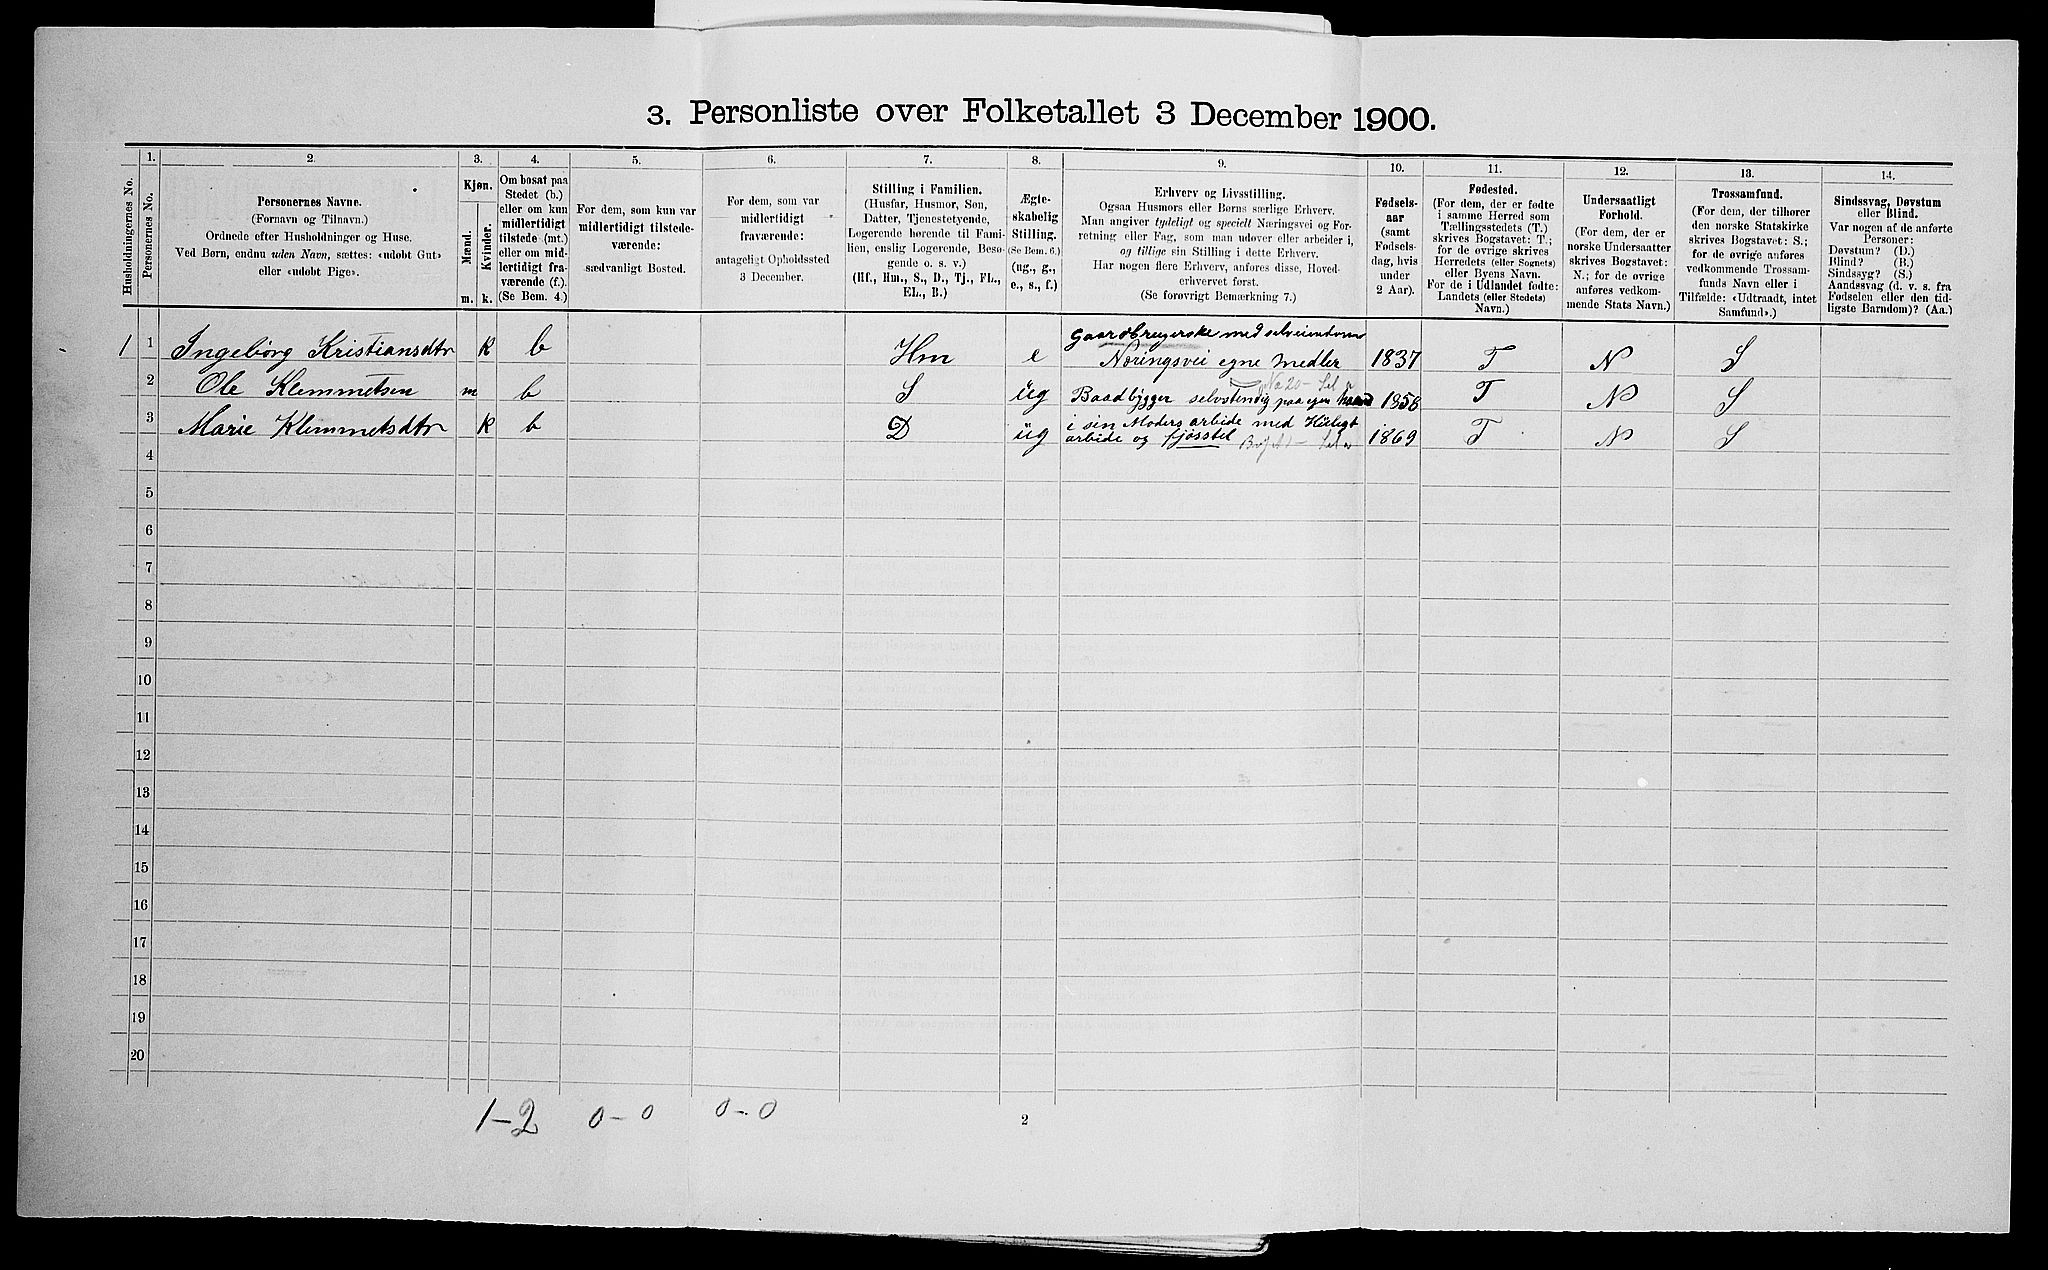 3. Personliste over Folketallet 3 December 1900.
1. 2. 3. 4. 5. 6. 7. 8. 9. 10. 11. 12. 13. 14.
Husholdningernes No.
Personernes No.
Personernes Navne.
(Fornavn og Tilnavn.)
Ordnede efter Husholdninger og Huse.
Ved Børn, endnu uden Navn, sættes: «udøbt Gut»
eller «udøbt Pige».
Kjøn.
Mænd.
Kvinder.
m. k.
Om bosat paa
Stedet (b.)
eller om kun
midlertidigt
tilstede (mt.)
eller om mid-
lertidigt fra-
værende (f.).
(Se Bem. 4.)
For dem, som kun var
midlertidigt tilstede-
værende:
sædvanligt Bosted.
For dem, som var
midlertidigt
fraværende:
antageligt Opholdssted
3 December.
Stilling i Familien.
(Husfar, Husmor, Søn,
Datter, Tjenestetyende,
Logerende hørende til Fami-
lien, enslig Logerende, Besø-
gende o. s. v.)
(Hf., Hm., S., D., Tj., FL.,
EL., B.)
Ægte-
skabelig
Stilling.
(Se Bem. 6.)
(ug., g.,
e., s., f.)
Erhverv og Livsstilling.
Ogsaa Husmors eller Børns særlige Erhverv.
Man angiver tydeligt og specielt Næringsvei og For-
retning eller Fag, som man udøver eller arbeider i,
og tillige sin Stilling i dette Erhverv.
Har nogen flere Erhverv, anføres disse, Hoved-
erhvervet først.
(Se forøvrigt Bemærkning 7.)
Fødsels-
aar
(samt
Fødsels-
dag, hvis
under
2 Aar).
Fødested.
(For dem, der er fødte
i samme Herred som
Tællingsstedets (T.)
skrives Bogstavet: T.;
for de øvrige skrives
Herredets (eller Sognets)
eller Byens Navn.
For de i Udlandet fødte:
Landets (eller Stedets)
Navn.)
Undersaatligt
Forhold.
(For dem, der er
norske Undersaatter
skrives Bogstavet:
N.; for de øvrige
anføres vedkom-
mende Stats Navn.)
Trossamfund.
(For dem, der tilhører
den norske Statskirke
skrives Bogstavet: S.;
for de øvrige anføres
vedkommende Trossam-
funds Navn eller i
Tilfælde: «Udtraadt, intet
Samfund».)
Sindssvag, Døvstum
eller Blind.
Var nogen af de anførte
Personer:
Døvstum? (D.)
Blind? (B.)
Sindssyg? (S.)
Aandssvag (d. v. s. fra
Fødselen eller den tid-
ligste Barndom)? (Aa.)
Gaardbrugerske med selveiendoms
1 1 Ingebörg Kristiansdtr k b Hm e Næringsvei egne medler 1837 T N S
2 Ole Klemmetsen m b S üg Baadbygger selvstendig paa egen haand 1858 T N S
3 Marie Klemmetsdtr k b D üg i sin Moders arbeide med Hüsligt 1869 T N S
arbeide og fjösstel
4
5
6
7
8
9
10
11
12
13
14
15
16
17
18
19
20
1-2 0-0 0-0
2